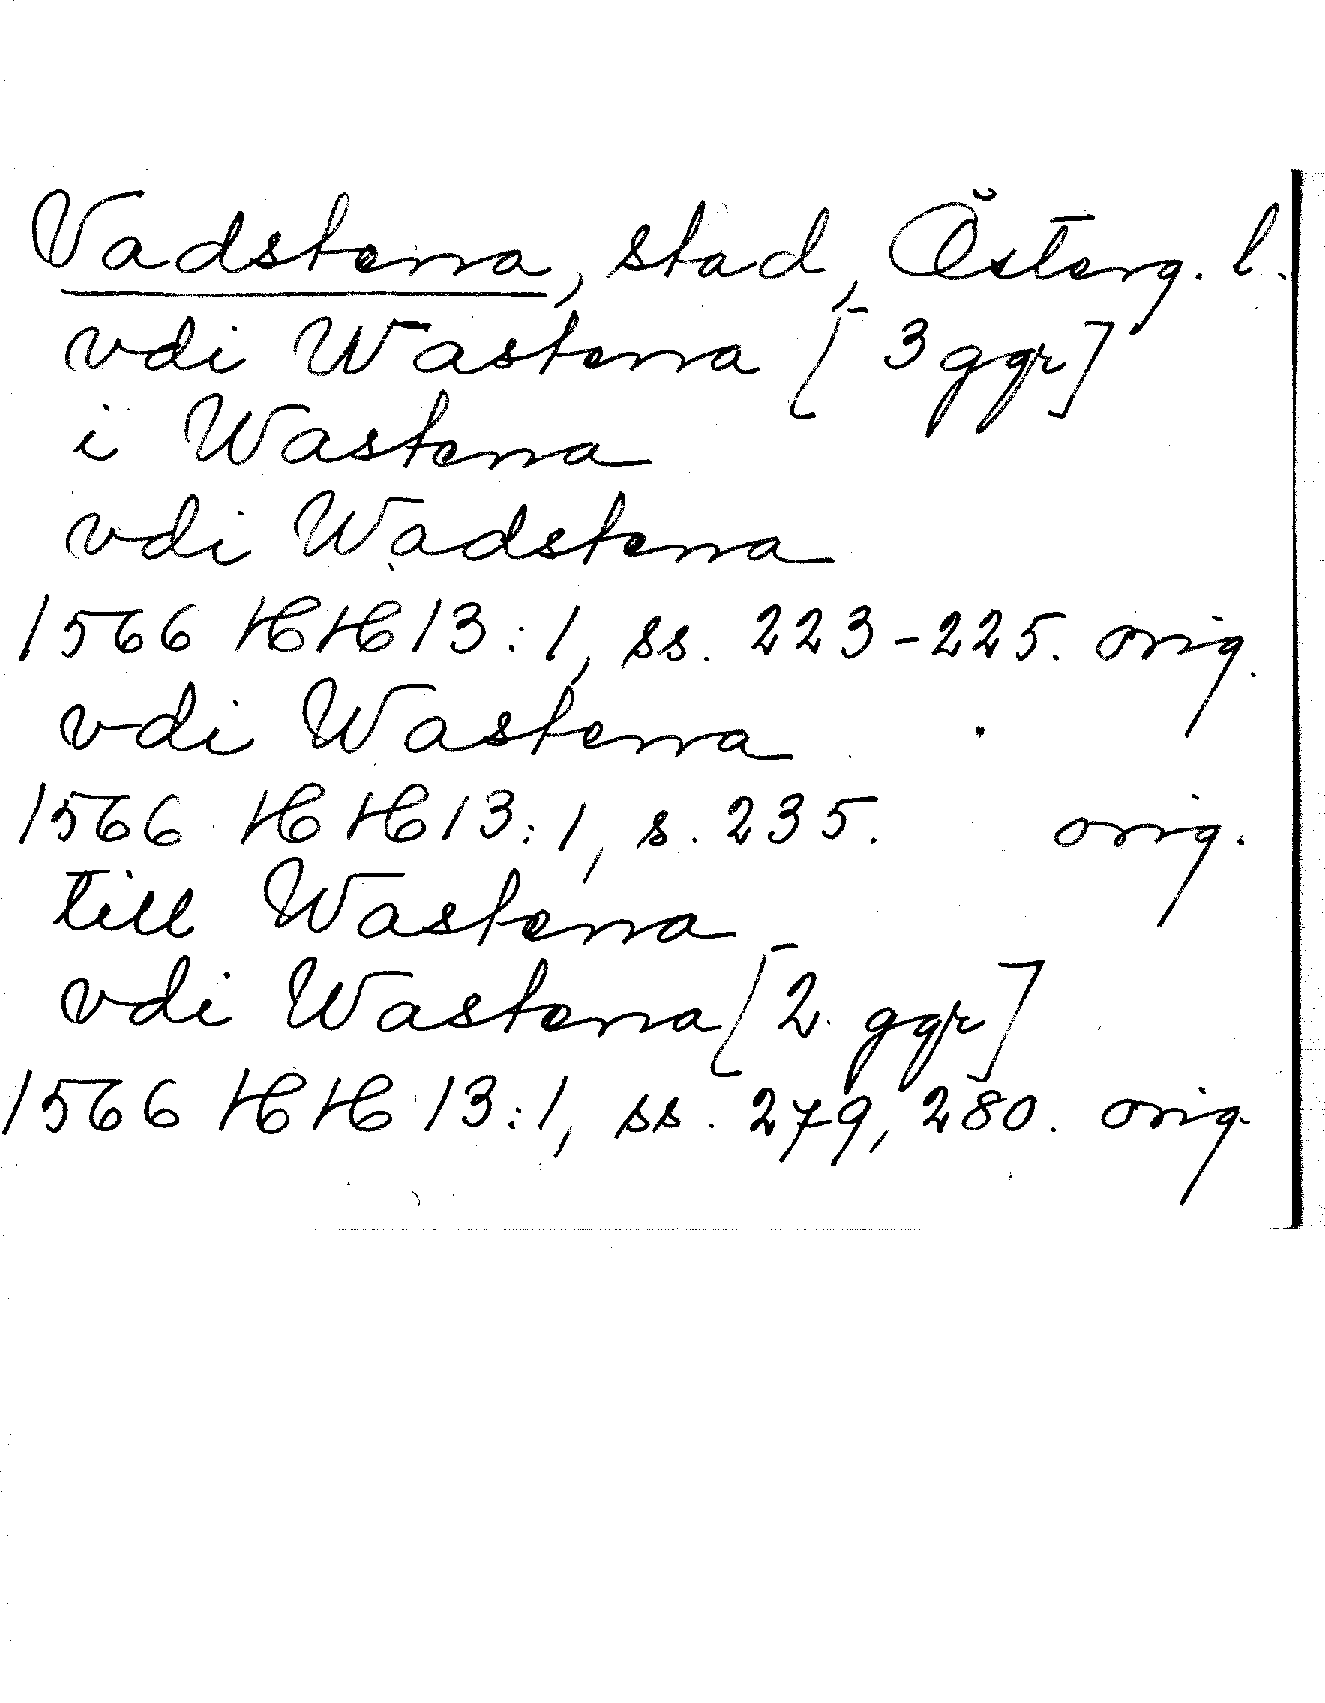 Vadstena, stad, Österg. l.
vdi Wastena [3 ggr]
i Wastena
vdi Wadstena
1566 HH 13:1, ss. 223-225. orig.
vdi Wastena
1566 HH 13:1, s. 235. orig.
till Wastena
vdi Wastena [2 ggr]
1566 HH 13:1, ss. 279, 280. orig.